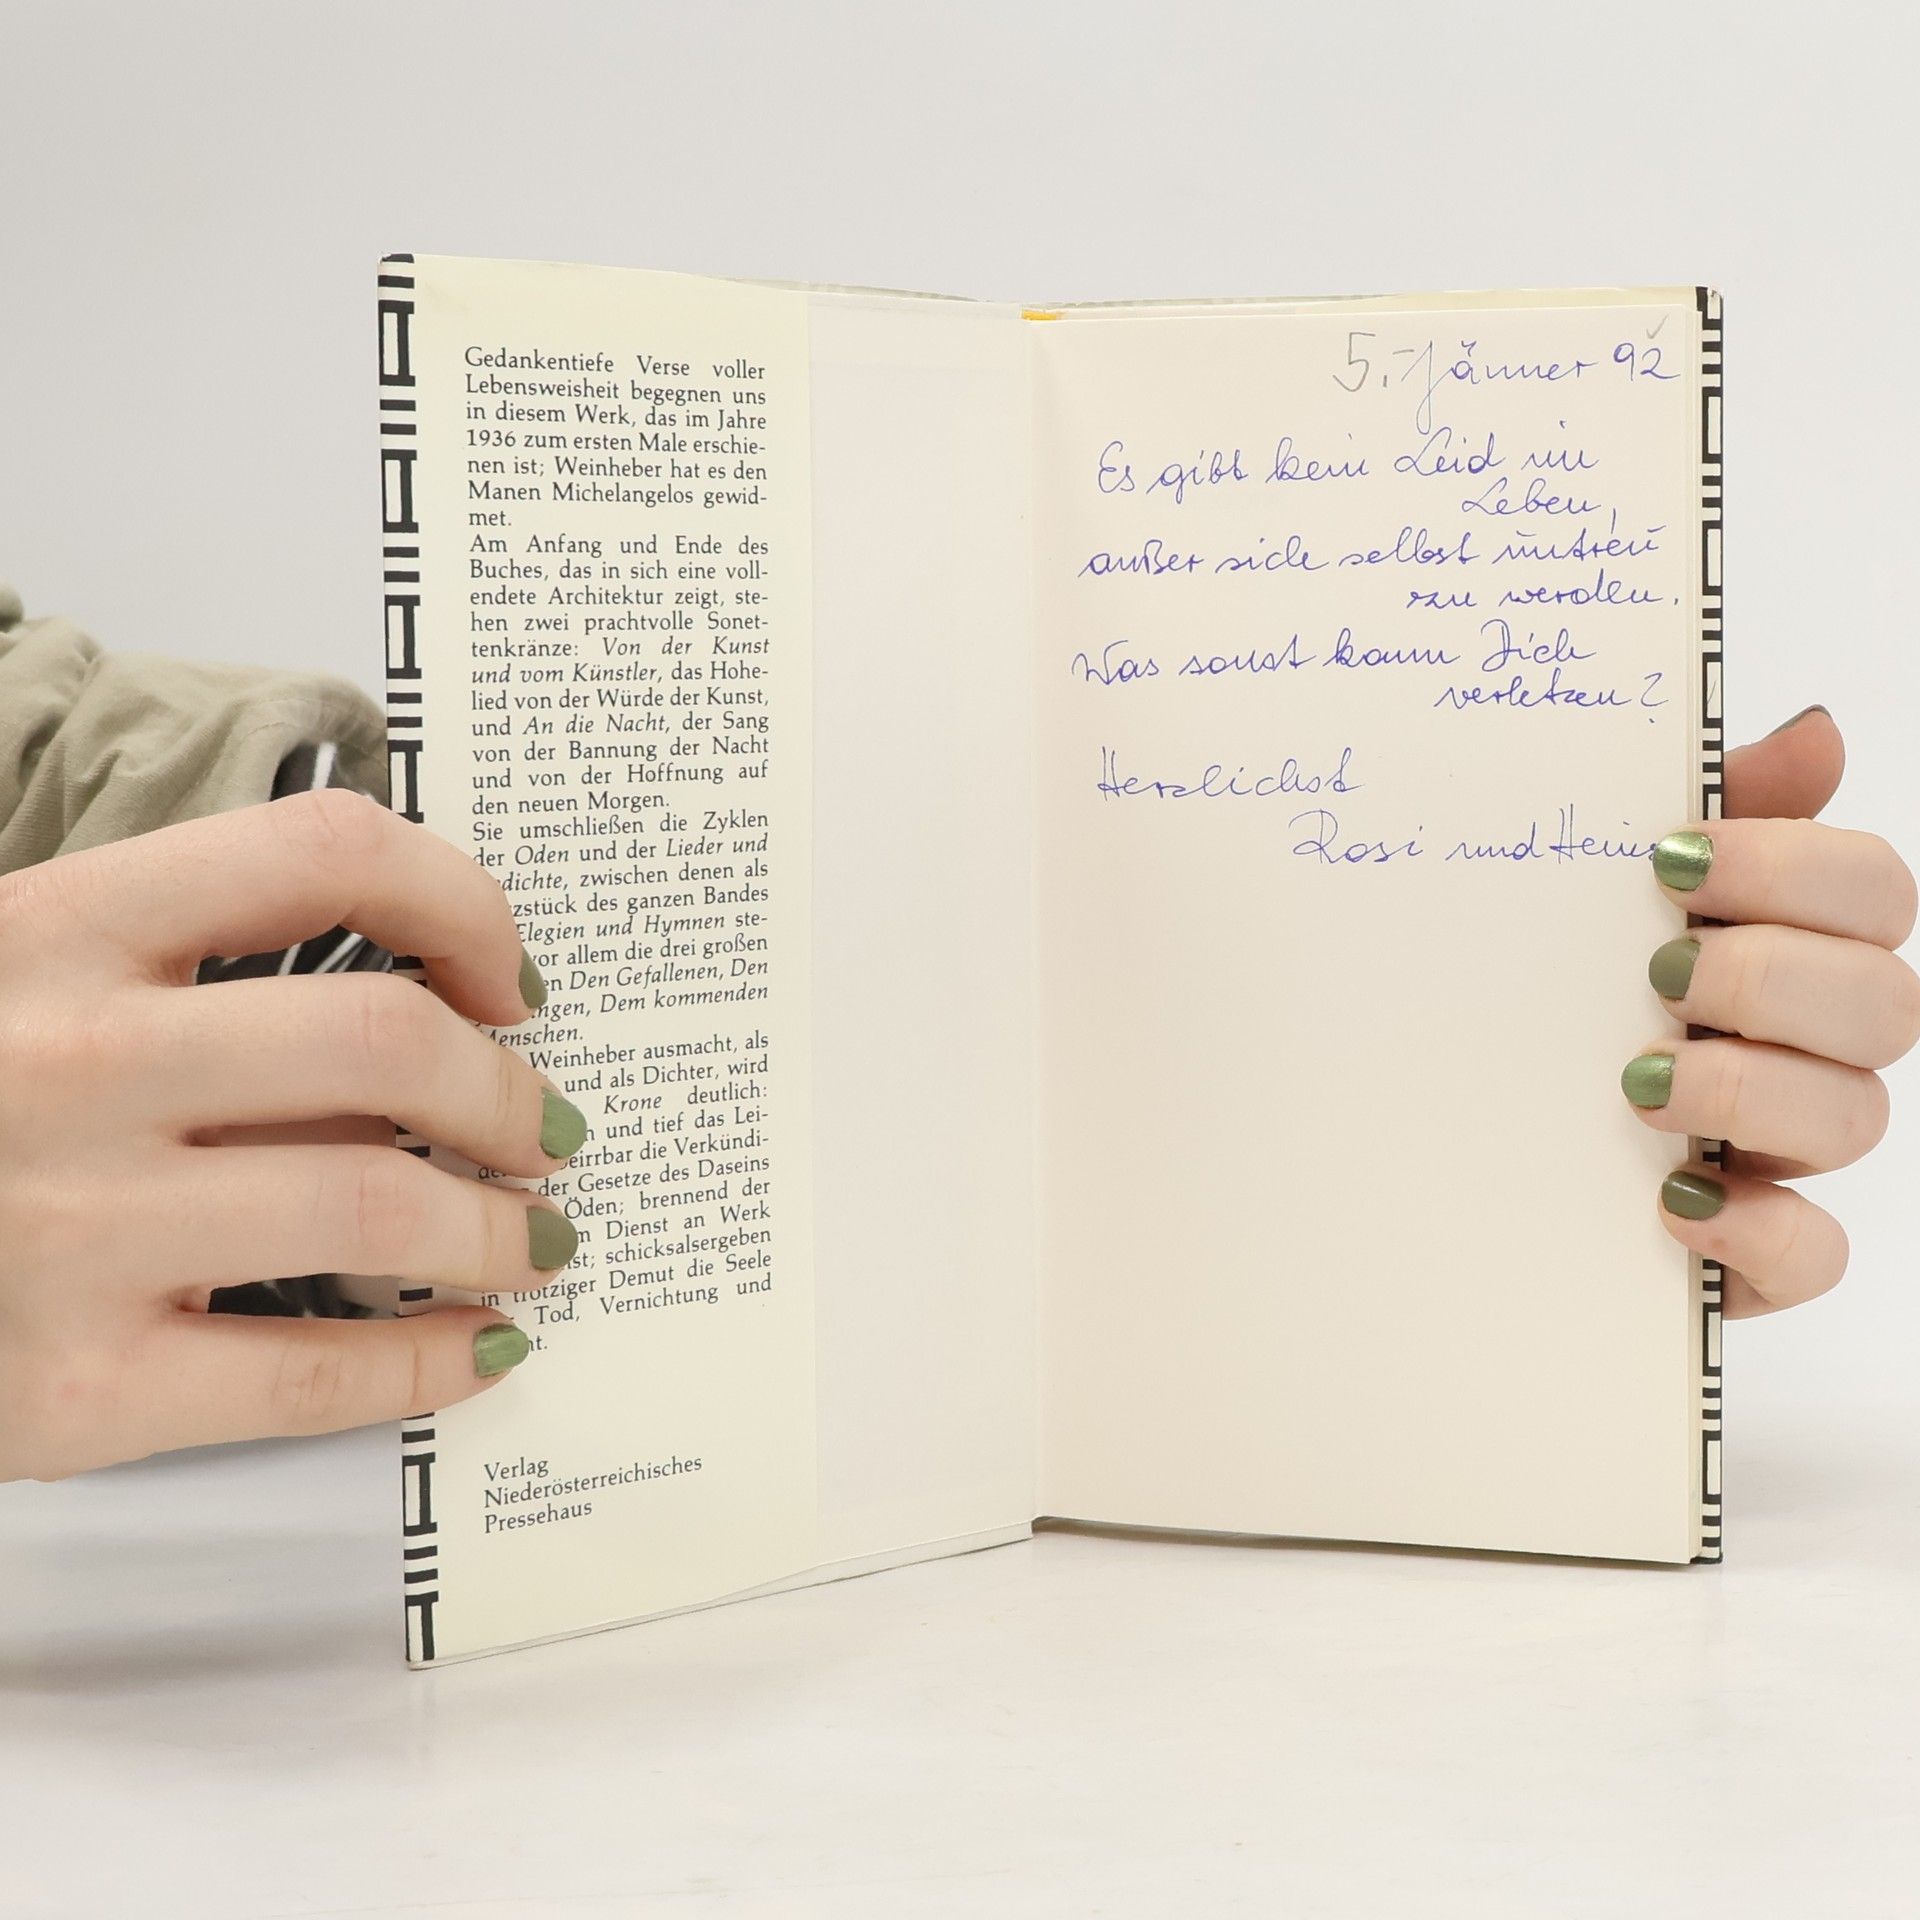 Gedankentiefe Verse voller
Lebensweisheit begegnen uns
in diesem Werk, das im Jahre
1936 zum ersten Male erschie-
nen ist; Weinheber hat es den
Manen Michelangelos gewid-
met.
Am Anfang und Ende des
Buches, das in sich eine voll-
endete Architektur zeigt, ste-
hen zwei prachtvolle Sonet-
tenkränze: Von der Kunst
und vom Künstler, das Hohe-
lied von der Würde der Kunst,
und An die Nacht, der Sang
von der Bannung der Nacht
und von der Hoffnung auf
den neuen Morgen.
Sie umschließen die Zyklen
der Oden und der Lieder und
dichte, zwischen denen als
zstück des ganzen Bandes
Elegien und Hymnen ste-
vor allem die drei großen
en Den Gefallenen, Den
ngen, Dem kommenden
Menschen.
Weinheber ausmacht, als
und als Dichter, wird
Krone deutlich:
und tief das Lei-
beirrbar die Verkündi-
der Gesetze des Daseins
Öden; brennend der
m Dienst an Werk
st; schicksalsergeben
in trotziger Demut die Seele
Tod, Vernichtung und
ht.
Verlag
Niederösterreichisches
Pressehaus
5. Jänner 92
Es gibt kein Leid im
Leben,
außer sich selbst untreu
zu werden.
Was sonst kann Dich
verletzen?
Herzlichst
Rosi und Heinz